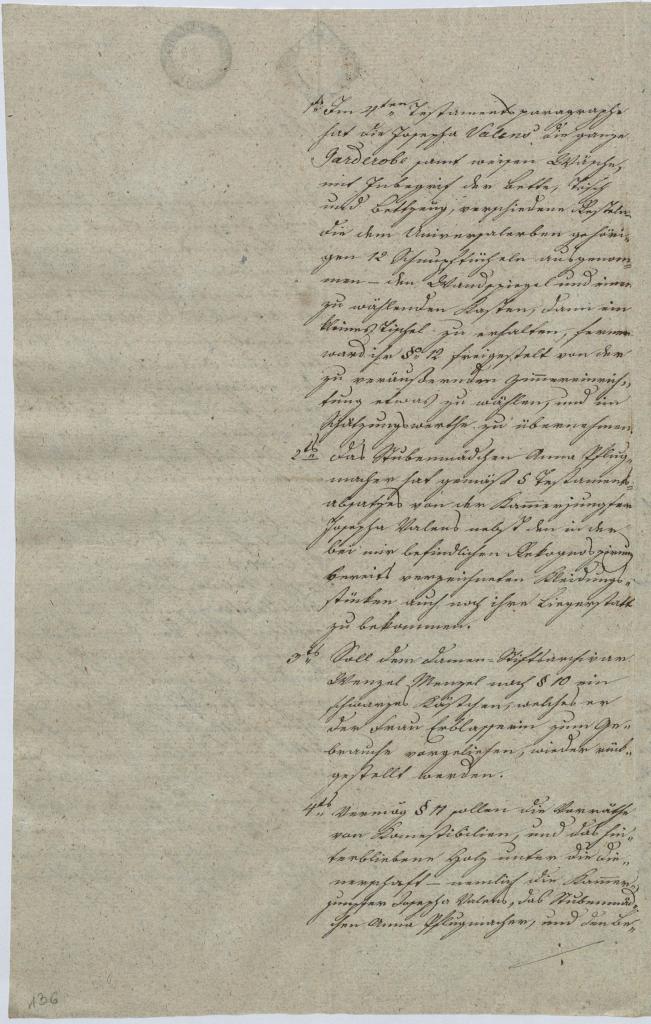 1tens Im 4ten Testamentsparagraphe
hat die Josepha Valens die ganze
Garderobe samt weisen Wäsche,
mit Inbegrif der Bette, Tisch
und Bettzeug, verschiedene
die dem Universalerben gehöri-
gen 12 Schnupftücheln ausgenom-
men – den Wandspiegel und einen
zu wählenden Kasten, dann ein
kleines Tischel zu erhalten, ferner
ward ihr § 12 freigestelt von der
zu veräußernden Zimmereinrich-
tung etwas zu wählen, und im
Schätzungswerthe zu übernehmen.
2tens Das Stubenmädchen Anna Pflug-
macher hat gemäß § Testaments-
absatzes von der Kammerjungfer
Josepha Valens nebst den in der
bei mir befindlichen
bereits verzeichneten Kleidungs-
stücken auch noch ihre Liegerstatt
zu bekommen.
3tens Soll dem Damen-Stiftsarchivar
Wenzel Menzel nach § 10 ein
schwarzes Kästchen, welches er
der Frau Erblasserin zum Ge-
brauche vorgeliehen, wieder rück-
gestellt werden.
4tens Vermög § 11 sollen die Vorräthe
von Komestibilien, und das hin-
terbliebene Holz unter die Die-
nerschaft – nemlich die Kammer-
jungfer Josepha Valens, das Stubenmäd-
chen Anna Pflugmacher, und den Be-
136